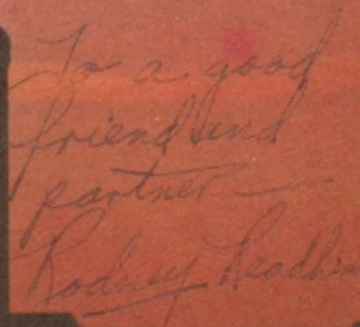 To a good
friend and
partner —
Rodney